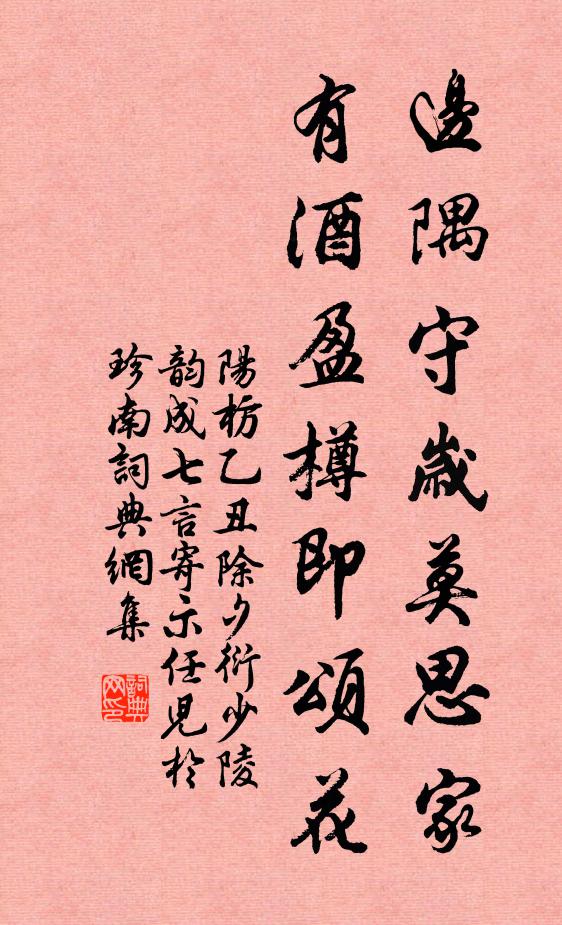 邊隅守歲莫思家
有酒盈樽即頌花
陽枋乙丑除夕衍少陵
韵成七言寄示任児於
珍南詞典網集
詞典網印